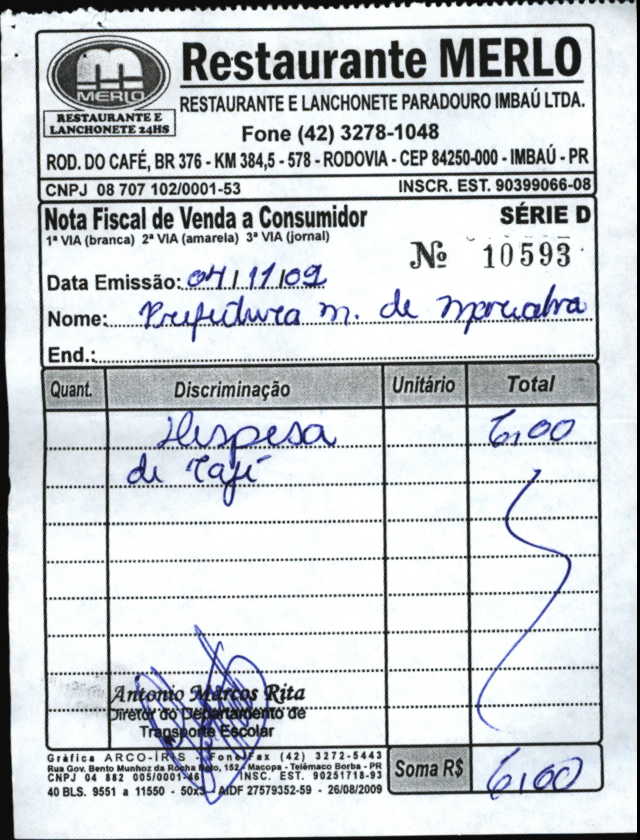 MERLO
RESTAURANTE E
LANCHONETE 24HS
Restaurante MERLO
RESTAURANTE E LANCHONETE PARADOURO IMBAÚ LTDA.
Fone (42) 3278-1048
ROD. DO CAFÉ, BR 376 - KM 384,5 - 578 - RODOVIA - CEP 84250-000 - IMBAÚ - PR
CNPJ 08 707 102/0001-53 INSCR. EST. 90399066-08
Nota Fiscal de Venda a Consumidor SÉRIE D
1ª VIA (branca) 2ª VIA (amarela) 3ª VIA (jornal)
Nº 10593
Data Emissão: 04/11/09
Nome: Prefeitura m. de
End.:
Quant. Discriminação Unitário Total
Despesa 6,00
de
Antonio Marcos Rita
Diretor do Departamento de
Transporte Escolar
Gráfica ARCO-ÍRIS - Fone/Fax (42) 3272-5443
Rua Gov. Bento Munhoz da Rocha Neto, 152 - Macopa - Telêmaco Borba - PR
CNPJ 04 882 005/0001-46 INSC. EST. 90251718-93
40 BLS. 9551 a 11550 - 50x3 - AIDF 27579352-59 - 26/08/2009
Soma R$ 6,00